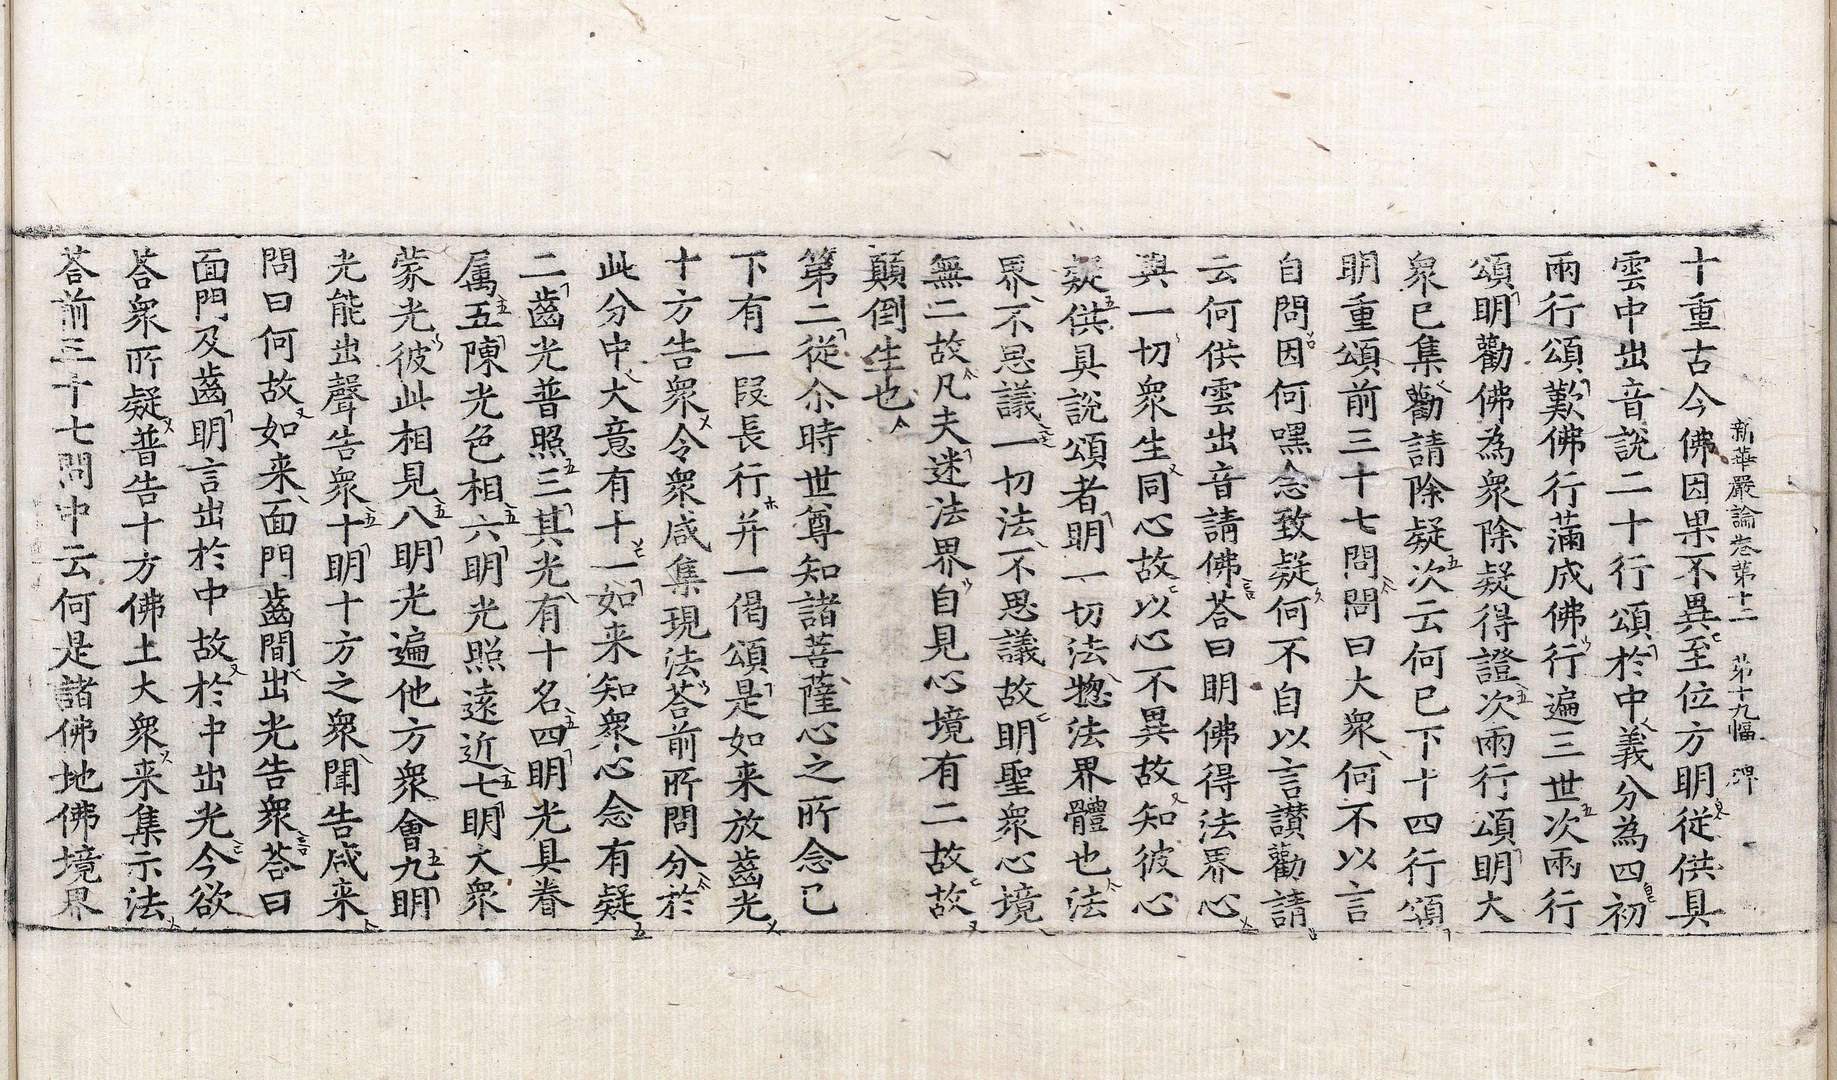 新華嚴論卷第十二　第十九幅　渾
十重古今佛因果不異至位方明從供具
雲中出音說二十行頌於中義分為四初
兩行頌歎佛行滿成佛行遍三世次兩行
頌明勸佛為衆除疑得證次兩行頌明大
衆已集勸請除疑次云何已下十四行頌
明重頌前三十七問問曰大衆何不以言
自問因何嘿念致疑何不自以言讃勸請
云何供雲出音請佛荅曰明佛得法界心
與一切衆生同心故以心不異故知彼心
疑供具說頌者明一切法揔法界體也法
界不思議一切法不思議故明聖衆心境
無二故凡夫迷法界自見心境有二故故
顛倒生也
第二從尒時世尊知諸菩薩心之所念已
下有一段長行并一偈頌是如来放齒光
十方告衆令衆咸集現法荅前所問分於
此分中大意有十一如来知衆心念有疑
二齒光普照三其光有十名四明光具眷
属五陳光色相六明光照遠近七明大衆
蒙光彼此相見八明光遍他方衆會九明
光能出聲告衆十明十方之衆聞告咸来
問曰何故如来面門齒間出光告衆荅曰
面門及齒明言出於中故於中出光今欲
荅衆所疑普告十方佛土大衆来集示法
荅前三十七問中云何是諸佛地佛境界